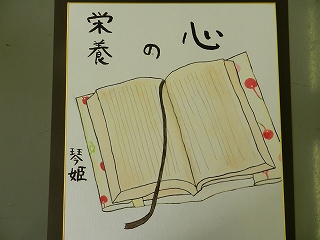 心の栄養
琴姫